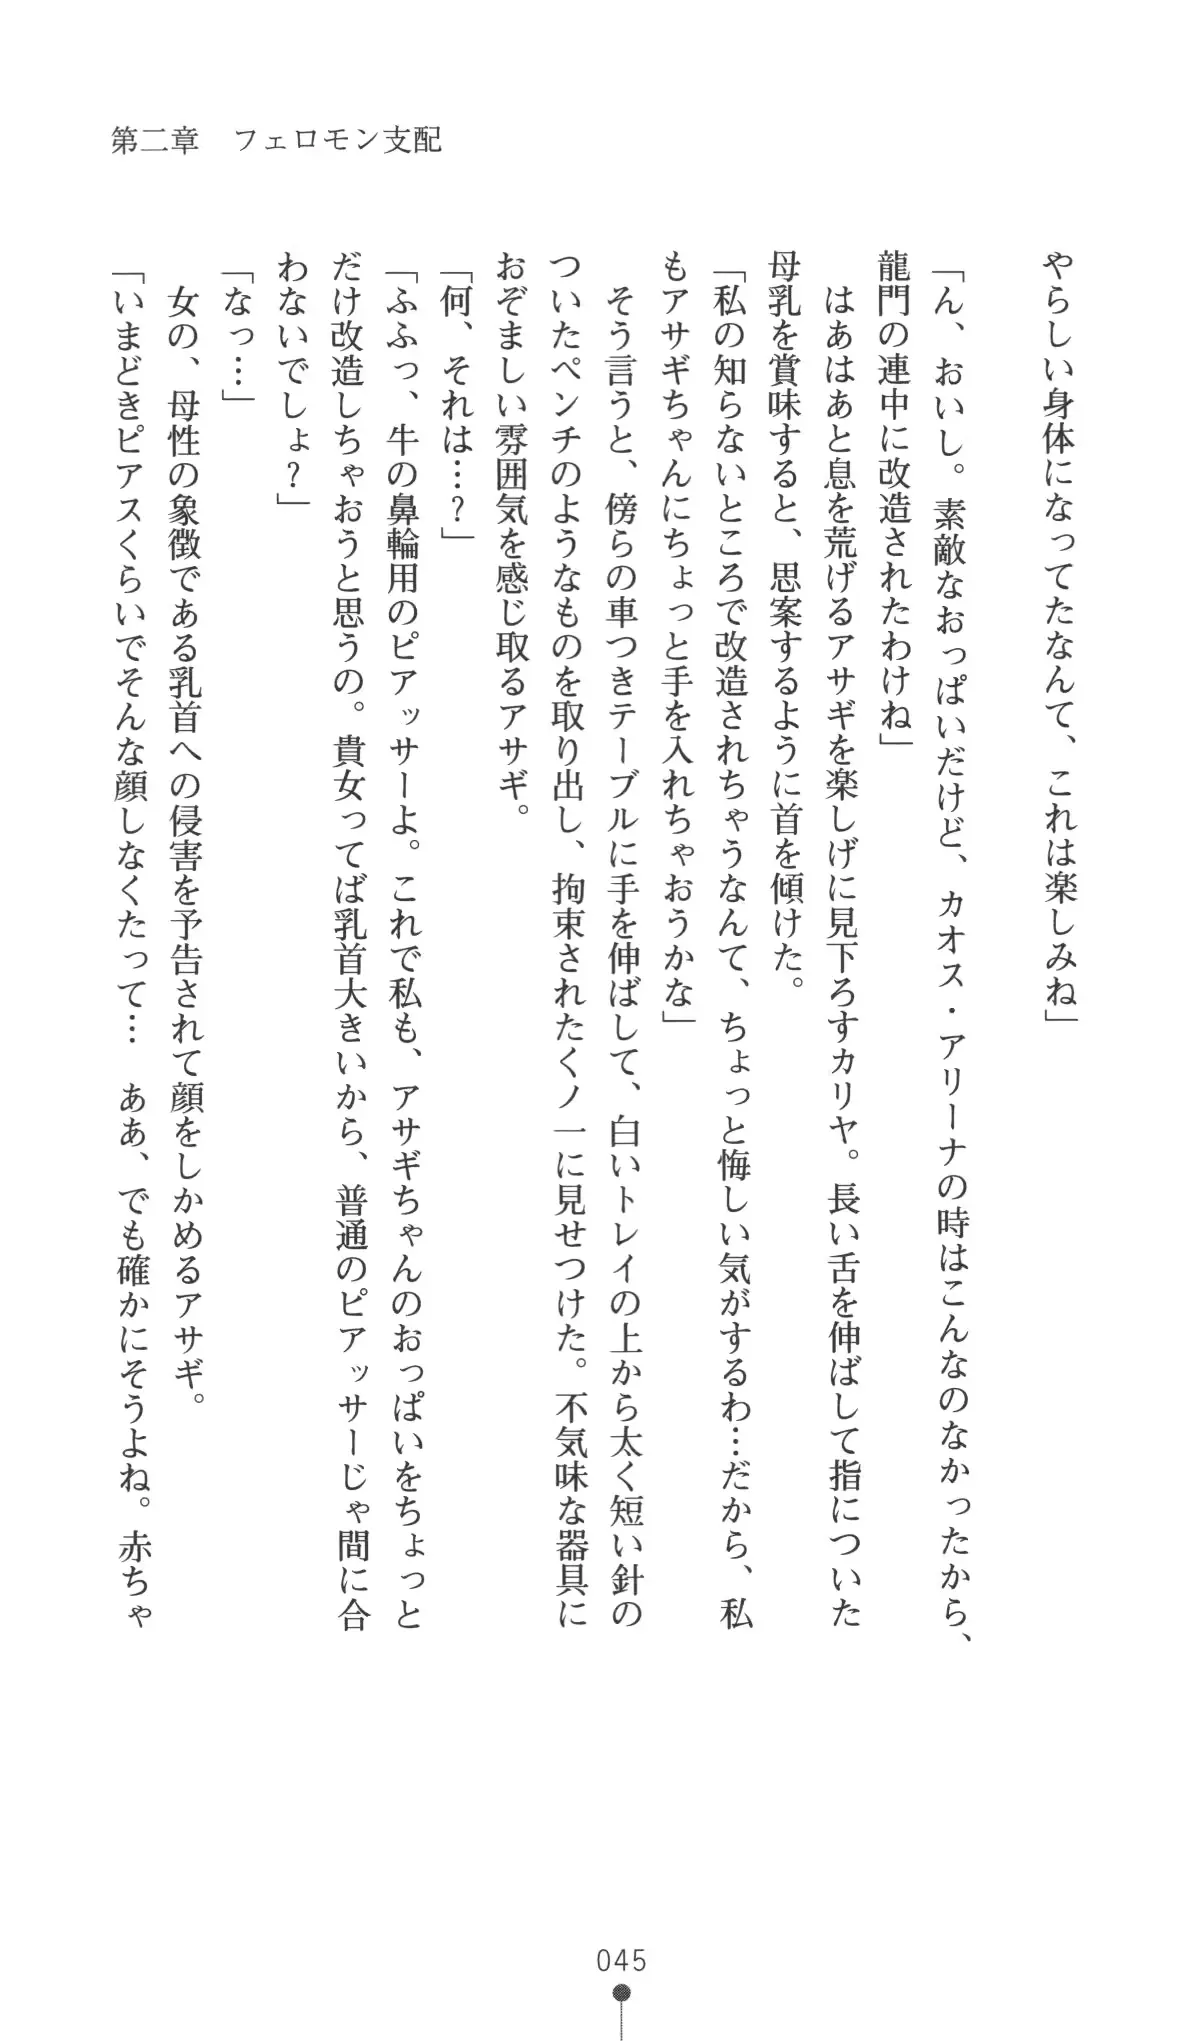 第二章　フェロモン支配
やらしい身体になってたなんて、これは楽しみね」
「ん、おいし。素敵なおっぱいだけど、カオス・アリーナの時はこんなのなかったから、
龍門の連中に改造されたわけね」
　はあはあと息を荒げるアサギを楽しげに見下ろすカリヤ。長い舌を伸ばして指についた
母乳を賞味すると、思案するように首を傾けた。
「私の知らないところで改造されちゃうなんて、ちょっと悔しい気がするわ…だから、私
もアサギちゃんにちょっと手を入れちゃおうかな」
　そう言うと、傍らの車つきテーブルに手を伸ばして、白いトレイの上から太く短い針の
ついたペンチのようなものを取り出し、拘束されたくノ一に見せつけた。不気味な器具に
おぞましい雰囲気を感じ取るアサギ。
「何、それは…？」
「ふふっ、牛の鼻輪用のピアッサーよ。これで私も、アサギちゃんのおっぱいをちょっと
だけ改造しちゃおうと思うの。貴女ってば乳首大きいから、普通のピアッサーじゃ間に合
わないでしょ？」
「なっ…」
　女の、母性の象徴である乳首への侵害を予告されて顔をしかめるアサギ。
「いまどきピアスくらいでそんな顔しなくたって…　ああ、でも確かにそうよね。赤ちゃ
045